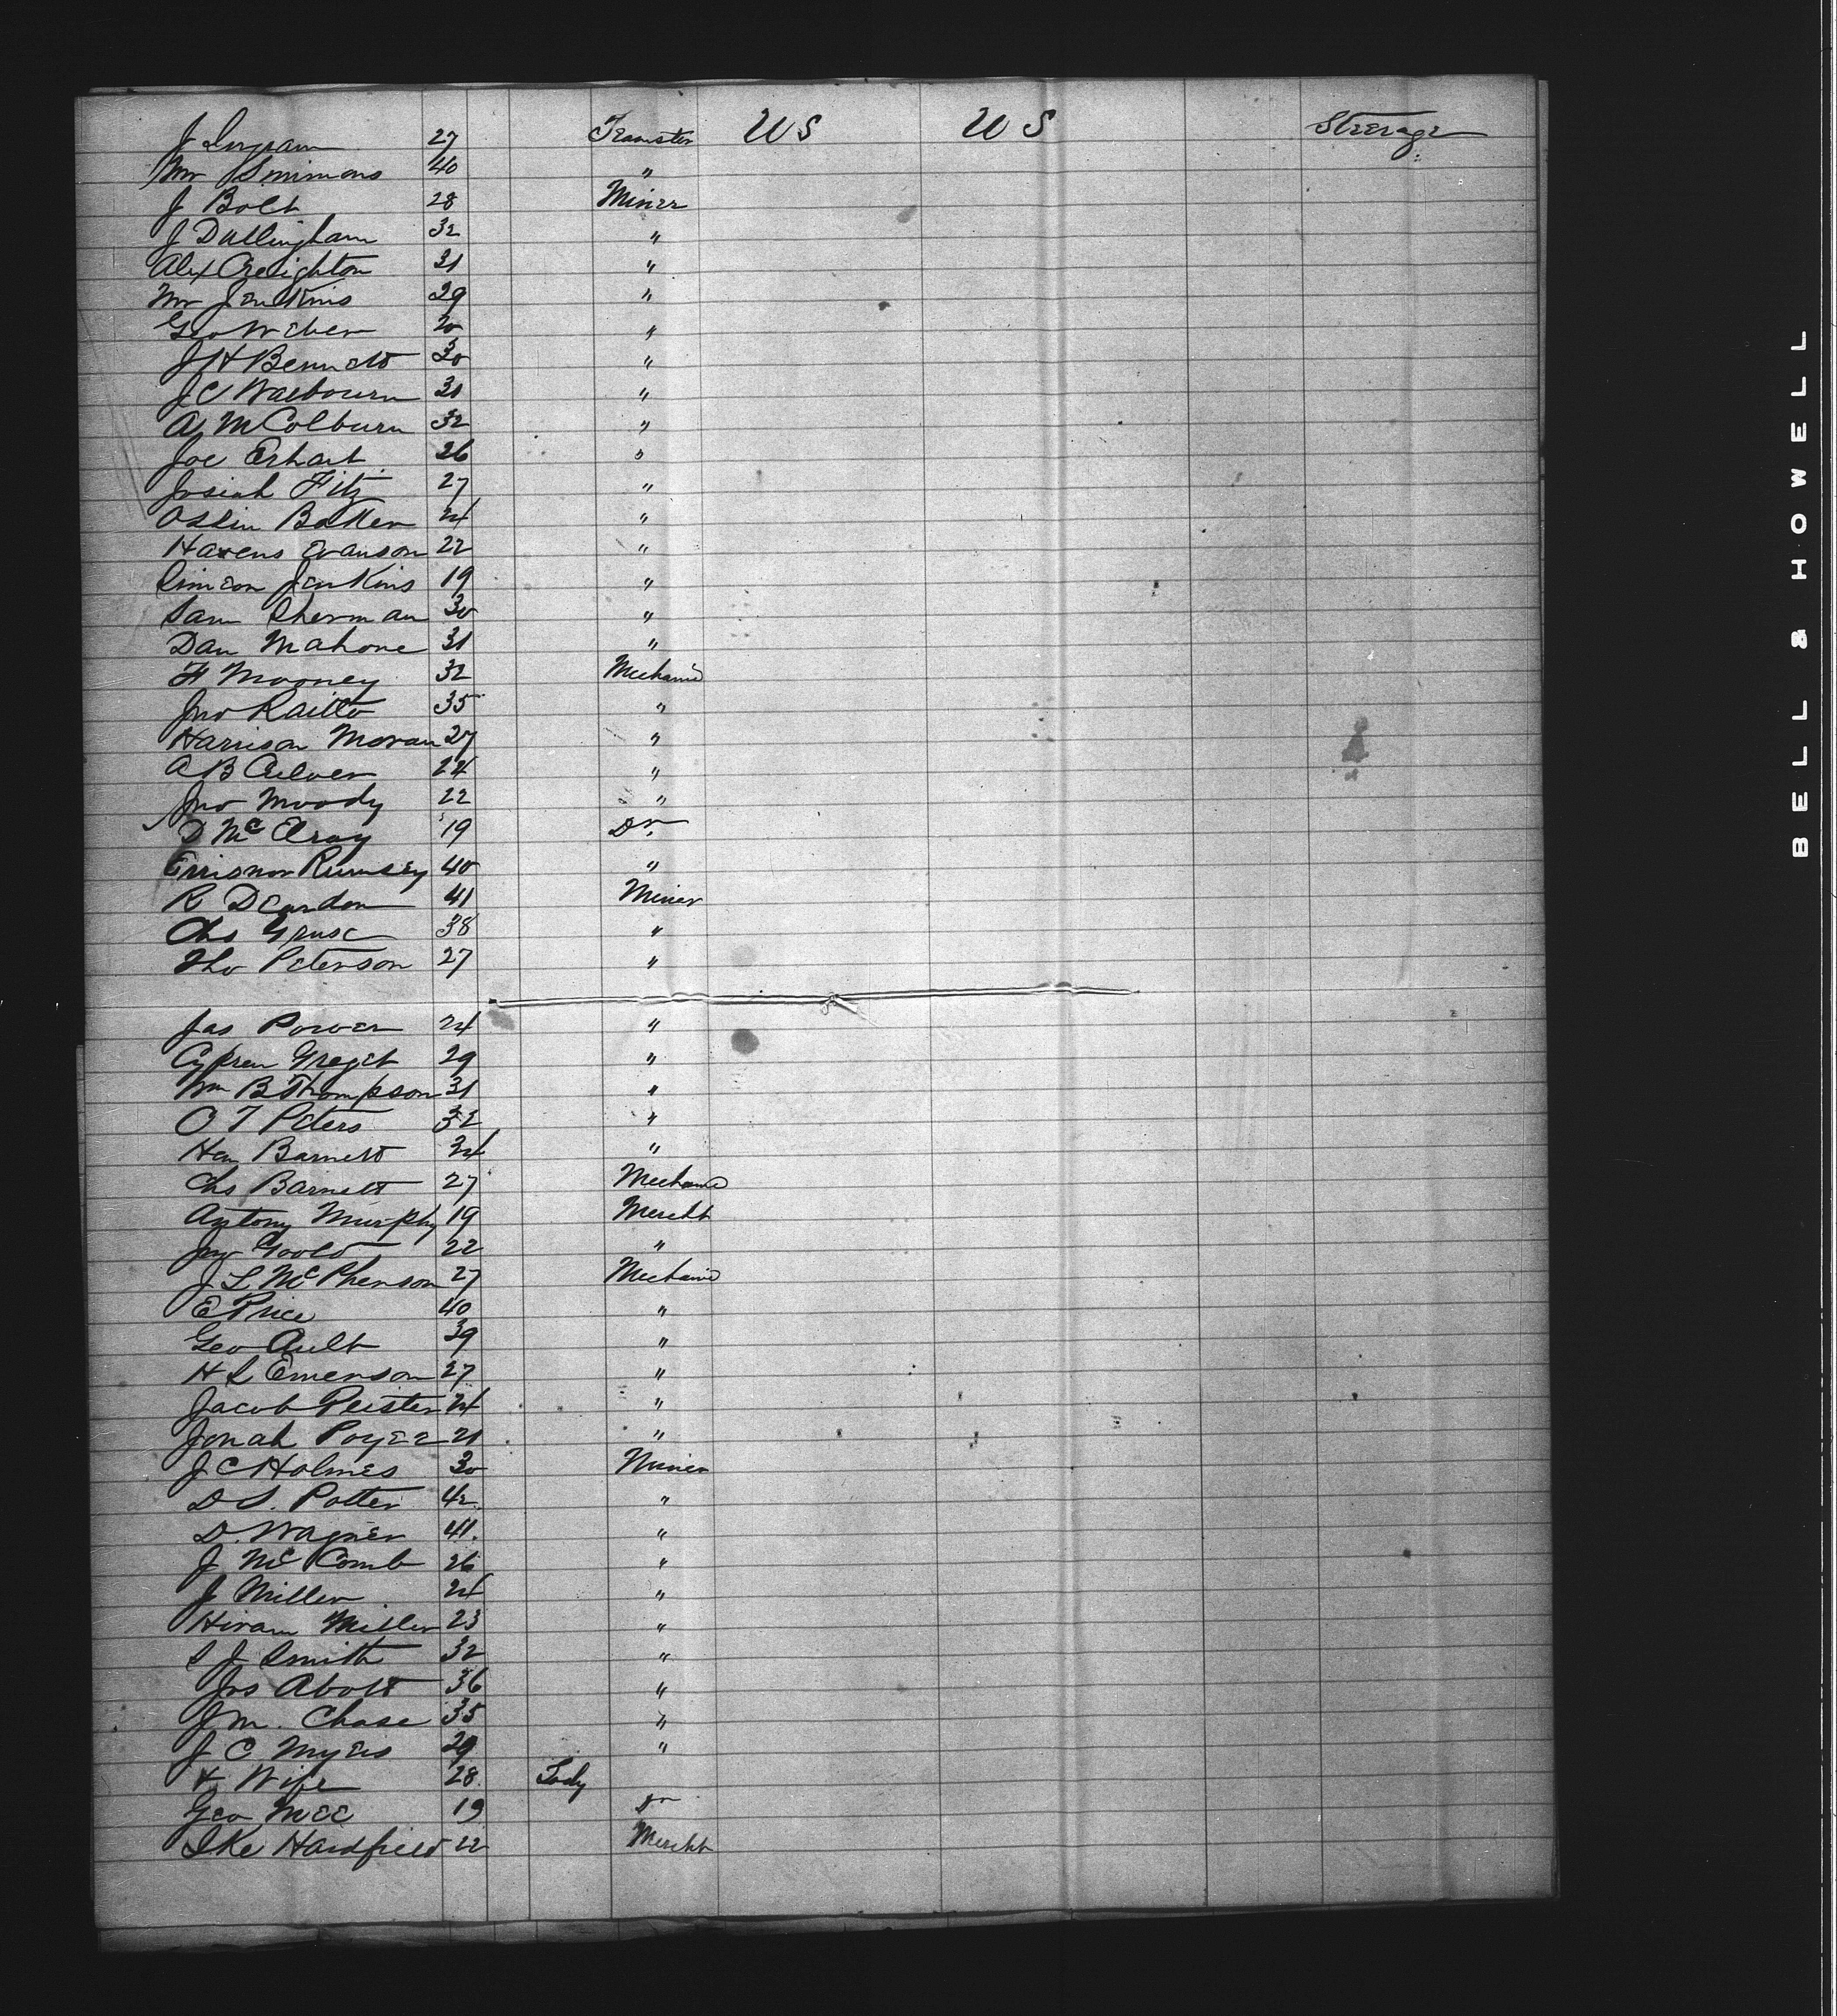 J Ingram 27 Teamster US US Steerage
Wm Simmons 40 "
J Bolt 28 Miner
J Dullingham 32 "
Alex Creighton 31 "
Wm Jenkins 29 "
Geo Weber 20 "
J H Bennett 30 "
J C Walbourn 31 "
A M Colburn 32 "
Joe Erhart 26 "
Josiah Fitz 27 "
Baker 24 "
Havens Evanson 22 "
Simeon Jenkins 19 "
Sam Sherman 30 "
Dan Mahone 31 "
H Mooney 32 Mechanic
Jno Railto 35 "
Harrison Moran 27 "
A B Culver 24 "
Jno Moody 22 "
D McElray 19 Dr
Rumsey 40 "
R Deardon 41 Miner
Chs Gruse 38 "
Tho Peterson 27 "
Jas Power 24 "
Cypren Greget 29 "
Wm B Thompson 31 "
O T Peters 32 "
Hen Barnett 34 "
Chs Barnett 27 Mechanic
Antony Murphy 19 Mercht
Jno Goold 22 "
J L McPherson 27 Mechanic
E Price 40 "
Geo Ault 39 "
H L Emerson 27 "
Jacob Peister 24 "
Jonah Poyer 21 "
J C Holmes 30 Miner
D S. Potter 42 "
D. Wagner 41. "
J McComb 26 "
J Miller 24 "
Hiram Miller 23 "
S J Smith 32 "
Jos Abott 36 "
J M. Chase 35 "
J C Myers 29 "
& Wife 28 Lady
Geo Mee 19 Dr
Ike Hardfield 22 Mercht
BELL & HOWELL